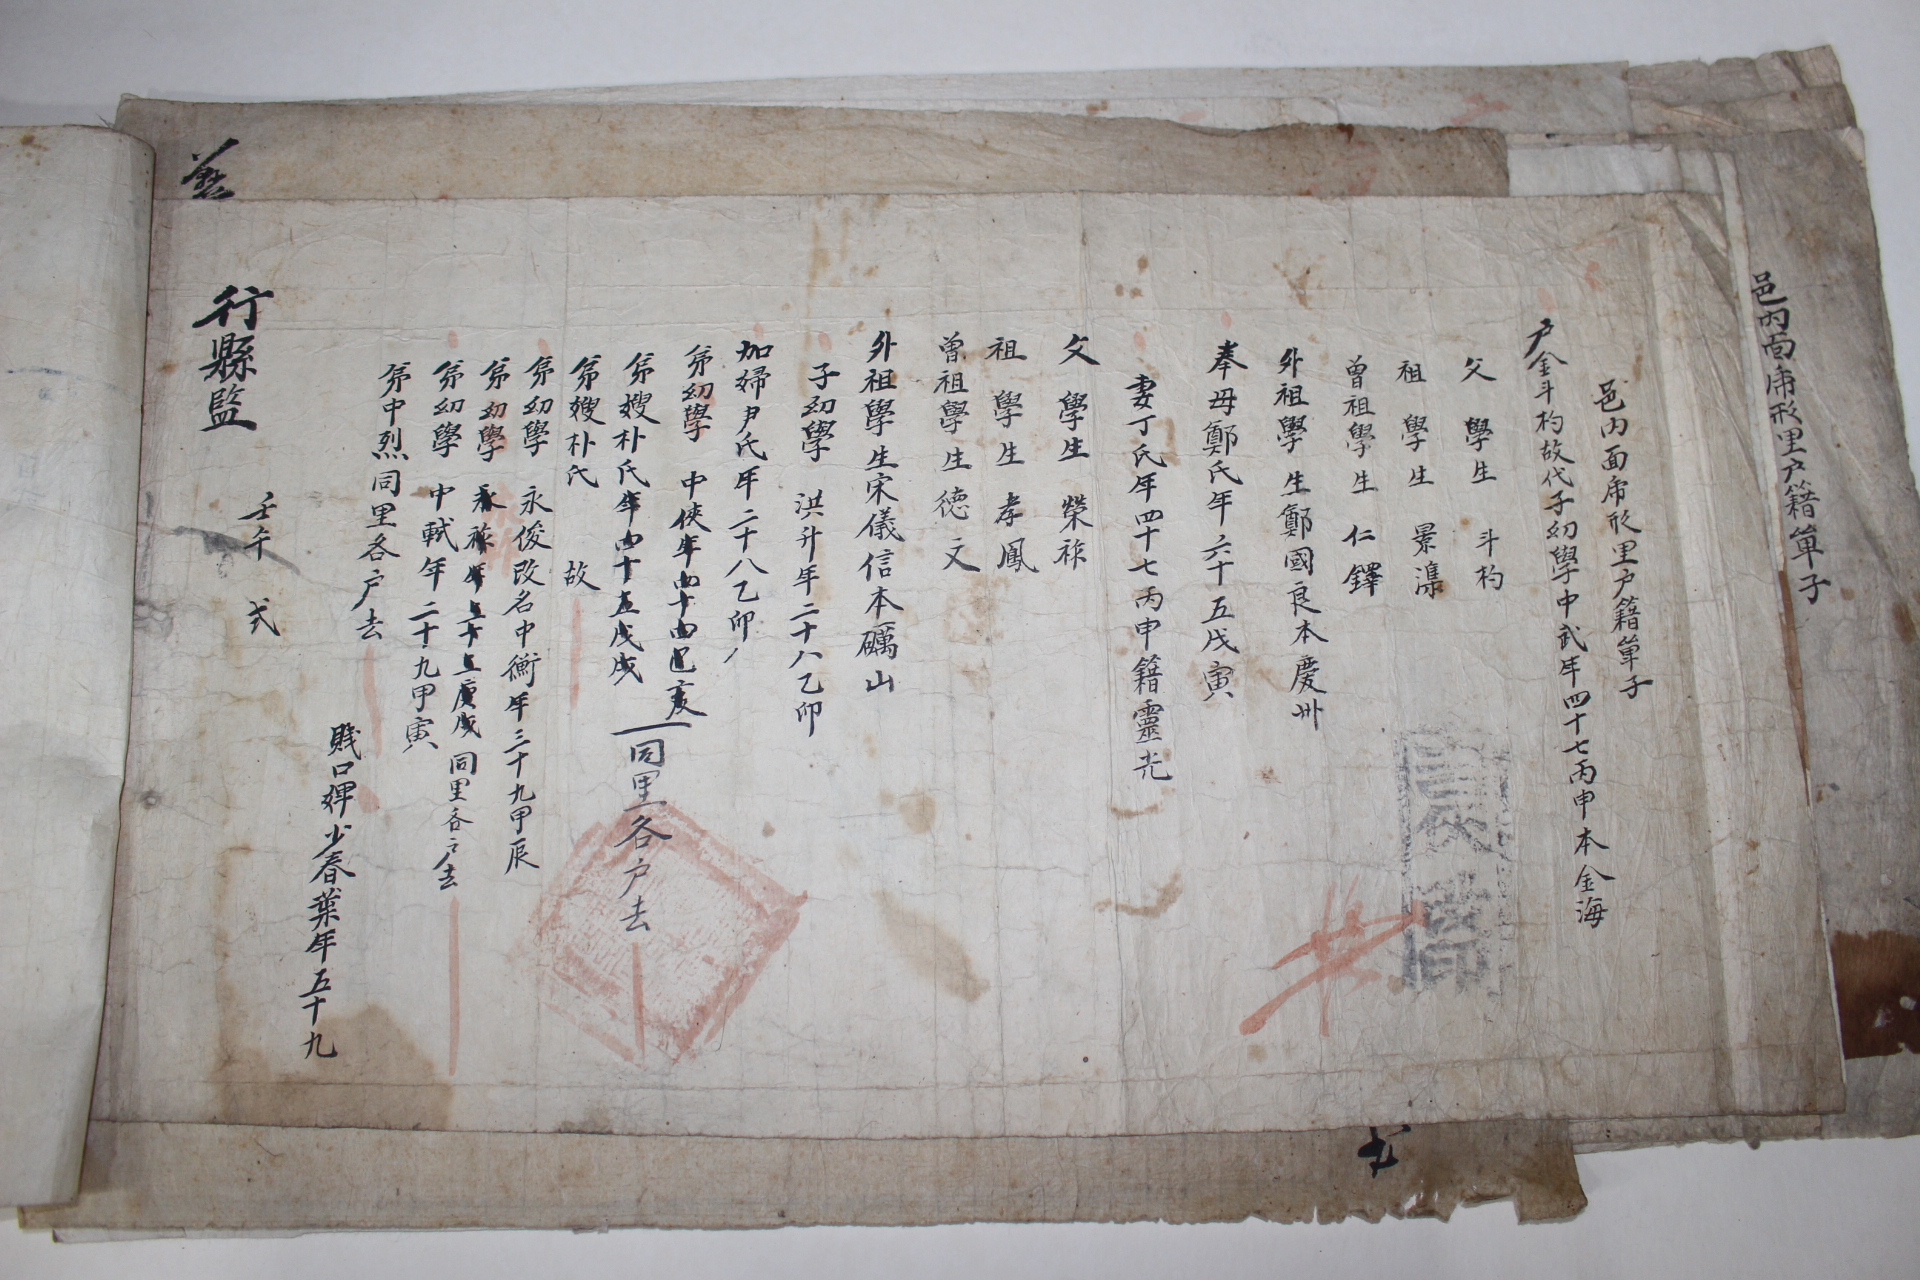 邑內面席形里戶籍單子
邑內面席形里戶籍單子
戶金斗杓故代子幼學中武年四十七丙申本金海
父學生斗杓
祖學生景
曾祖學生仁鐸
外祖學生鄭國良本慶州
奉母鄭氏年六十五戊寅
妻丁氏年四十七丙申籍靈光
父學生榮祚
祖學生孝鳳
曾祖學生德文
外祖學生宋儀信本礪山
子幼學洪升年二十八乙卯
加婦尹氏年二十八乙卯
弟幼學中俠年四十四己亥
弟嫂朴氏年四十五戊戌
同里各戶去
弟嫂朴氏故
弟幼學永俊改名中衡年三十九甲辰
弟幼學永祚年三十三庚戌同里各戶去
弟幼學中軾年二十九甲寅
弟中烈同里各戶去
賤口婢少春葉年五十九
壬午式
行縣監